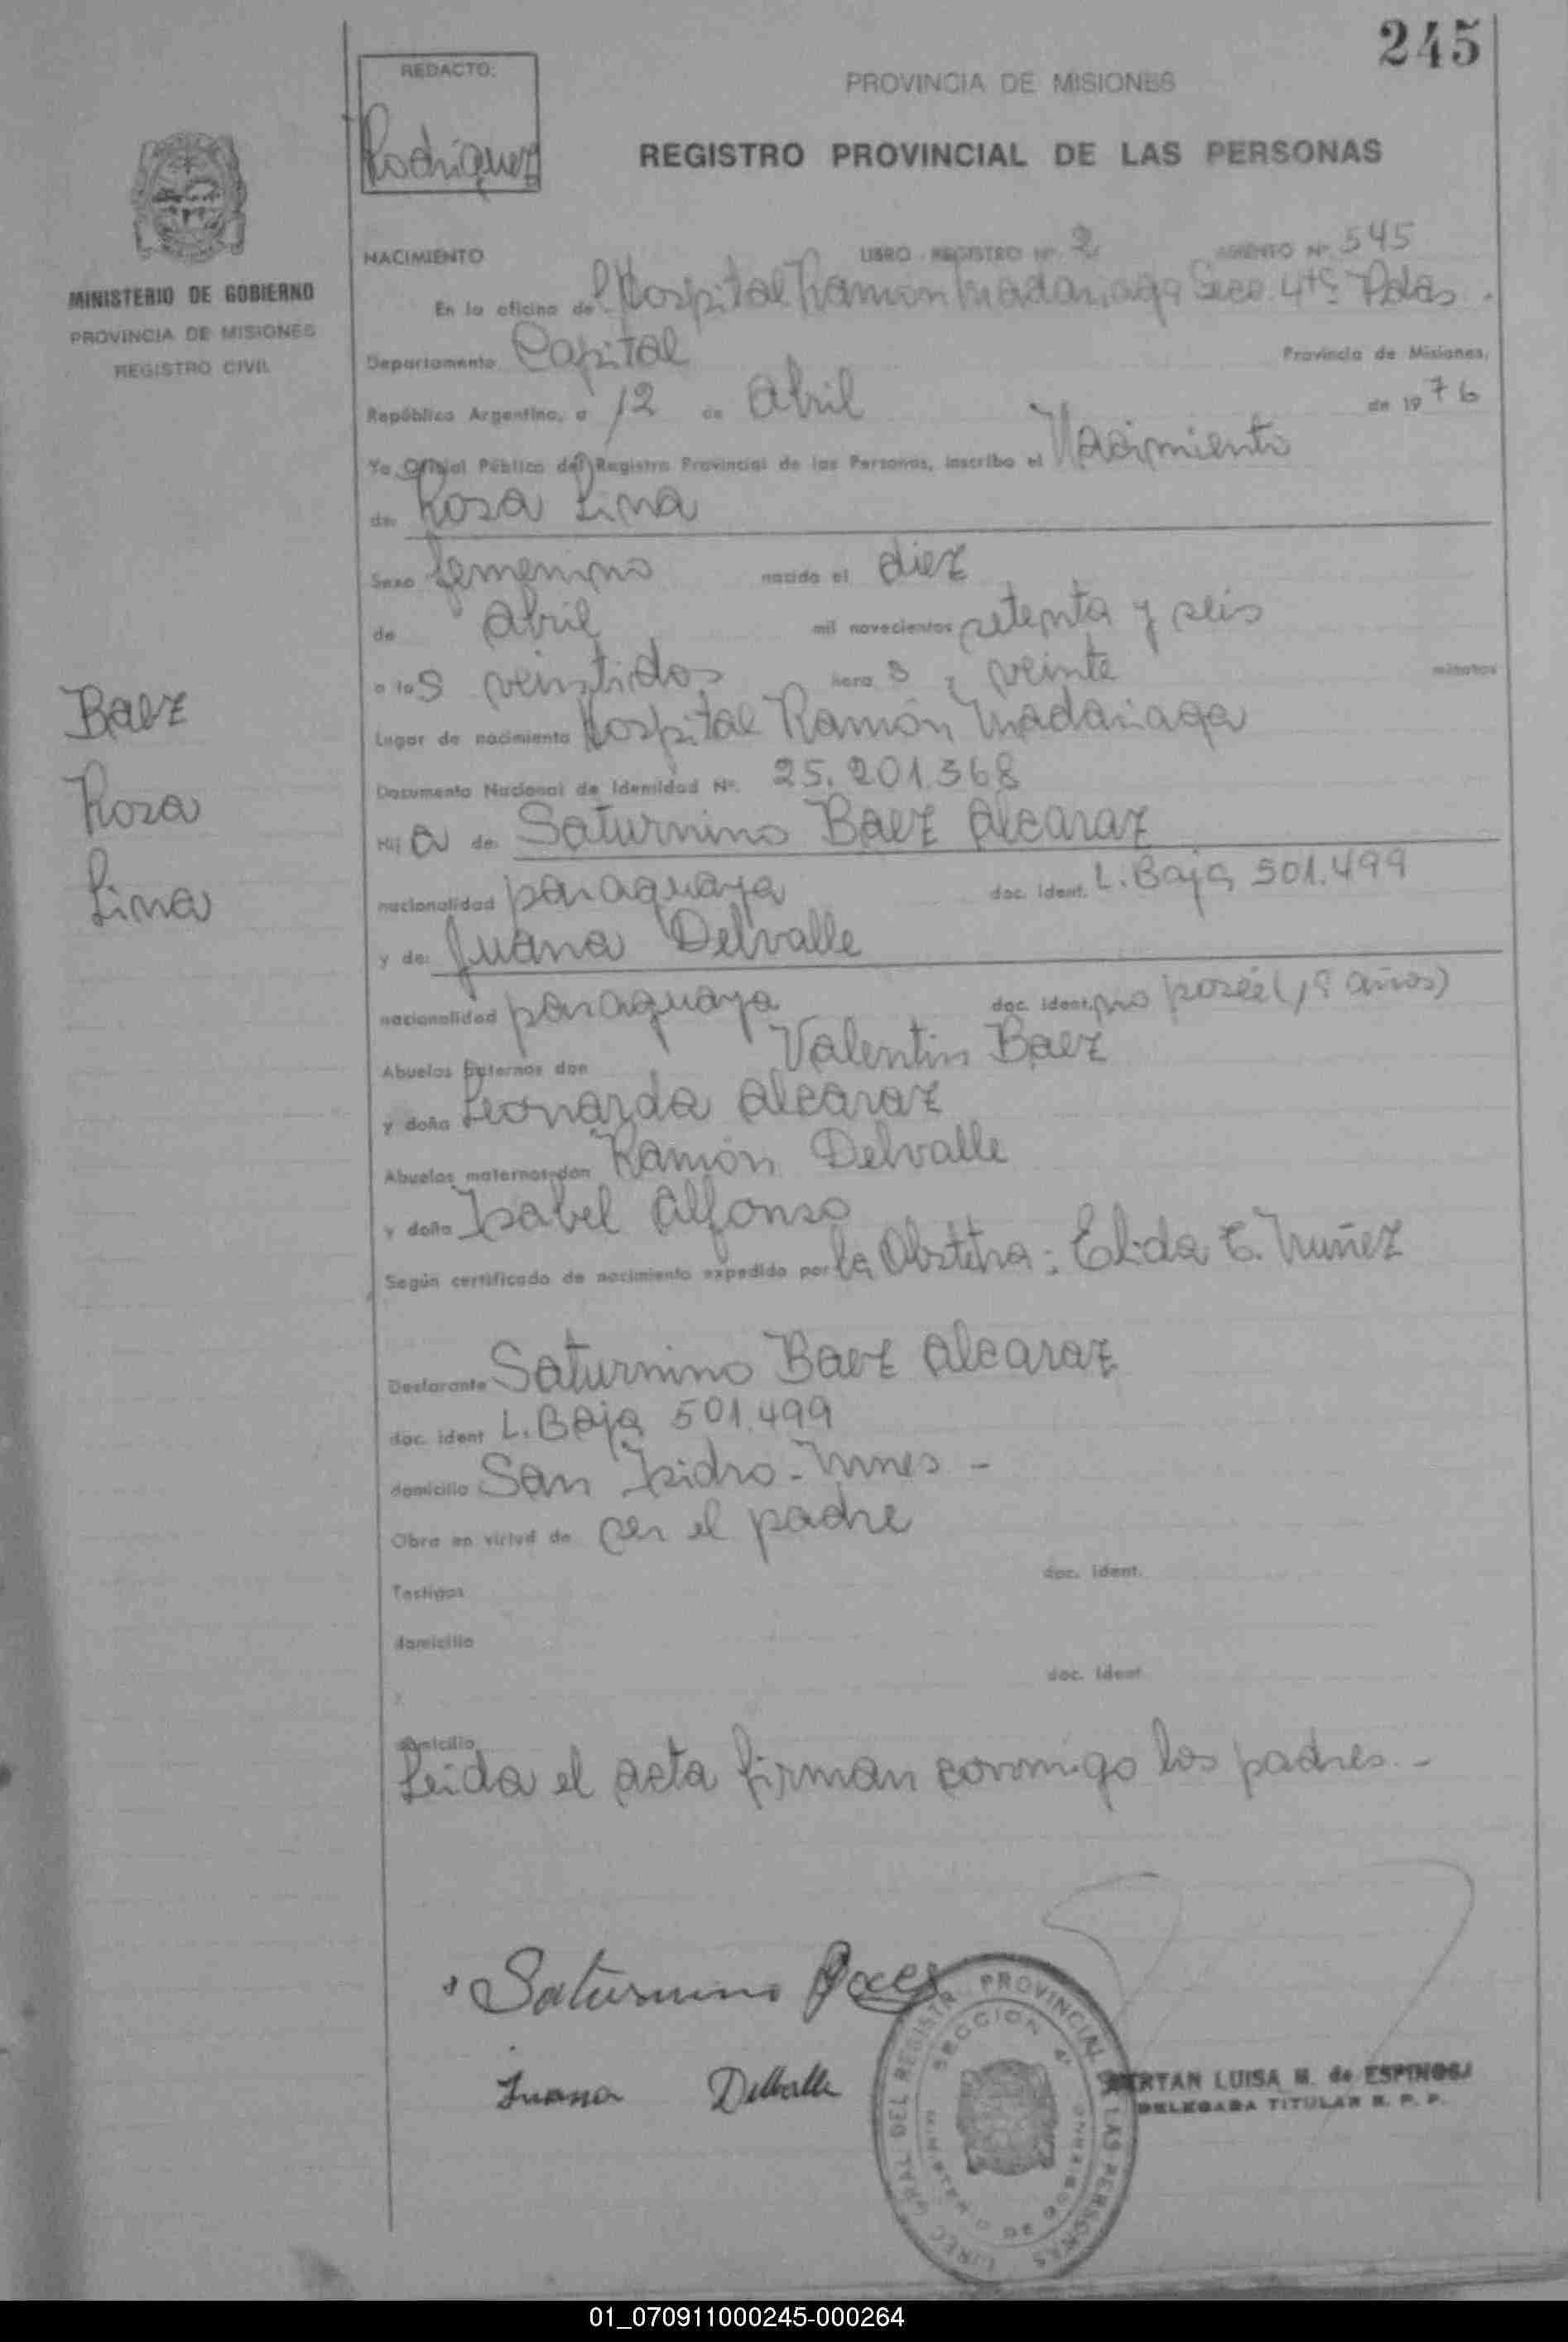 245
REDACTO:
Rodriguez
PROVINCIA DE MISIONES
REGISTRO PROVINCIAL DE LAS PERSONAS
MINISTERIO DE GOBIERNO
PROVINCIA DE MISIONES
REGISTRO CIVIL
NACIMIENTO LIBRO REGISTRO Nº 2 ASIENTO Nº 545
En la oficina del Hospital Ramón Madariaga Secc. 4ta Pdas.
Departamento Capital Provincia de Misiones,
República Argentina, a 12 de Abril de 1976
Yo Oficial Público del Registro Provincial de las Personas, inscribo el Nacimiento
de: Rosa Lina
Sexo femenino nacido el diez
de Abril mil novecientos setenta y seis
a las veintidos hora s y veinte minutos
Lugar de nacimiento Hospital Ramón Madariaga
Documento Nacional de Identidad Nº. 25.201.368
Hij a de: Saturnino Baez Alcaraz
nacionalidad paraguaya doc. ident. L. Baja 501.499
y de: Juana Delvalle
nacionalidad paraguaya doc. ident. no posée (19 años)
Abuelos paternos don Valentin Baez
y doña Leonarda Alcaraz
Abuelos maternos don Ramón Delvalle
y doña Isabel Alfonso
Según certificado de nacimiento expedido por la Obstetra: Elida C. Nuñez
Declarante Saturnino Baez Alcaraz
doc. ident L. Baja 501.499
domicilio San Isidro - Mnes -
Obra en virtud de ser el padre
Testigos doc. ident.
domicilio
y doc. ident
domicilio
Leida el acta firman conmigo los padres. -
Baez
Rosa
Lina
Saturnino Baez
Juana Delvalle
DIREC. GRAL. DEL REGISTRO PROVINCIAL DE LAS PERSONAS
SECCION 4ª
MINISTERIO DE GOBIERNO
MIRTAN LUISA M. de ESPINOSA
DELEGADA TITULAR R. P. P.
01_070911000245-000264